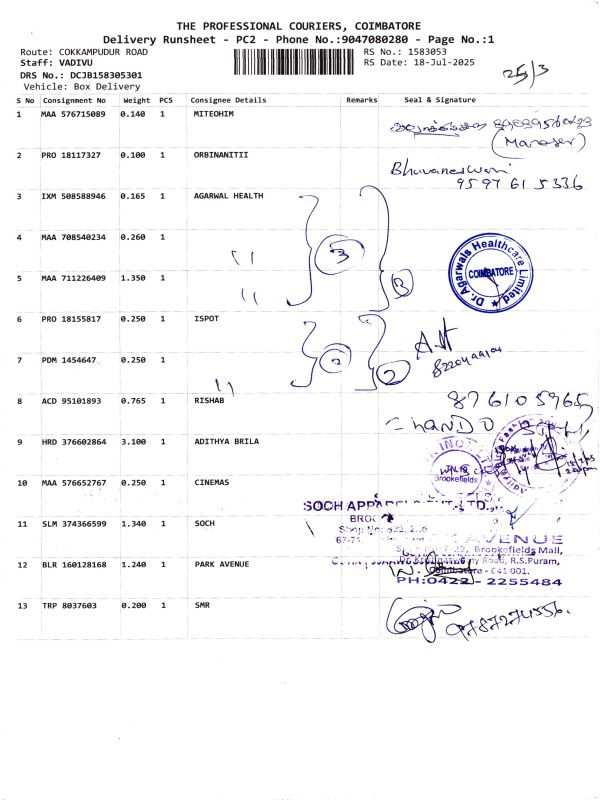 THE PROFESSIONAL COURIERS, COIMBATORE
Delivery Runsheet - PC2 - Phone No.:9047080280 - Page No.:1
Route: COKKAMPUDUR ROAD
RS No.: 1583053
Staff: VADIVU
RS Date: 18-Jul-2025
DRS No.: DCJB158305301
25/3
Vehicle: Box Delivery
S No Consignment No Weight PCS Consignee Details Remarks Seal & Signature
1 MAA 576715089 0.140 1 MITEOHIM
(Manager)
2 PRO 18117327 0.100 1 ORBINANITII
Bhuvaneswari
95976 15336
3 IXM 508588946 0.165 1 AGARWAL HEALTH
4 MAA 708540234 0.260 1 " 3
Dr. Agarwals Healthcare Limited
COIMBATORE
5 MAA 711226409 1.350 1 " 3
6 PRO 18155817 0.250 1 ISPOT
7 PDM 1454647 0.250 1 " 2 2
8 ACD 95101893 0.765 1 RISHAB
876105965
9 HRD 376602864 3.100 1 ADITHYA BRILA
Brookefields
10 MAA 576652767 0.250 1 CINEMAS
11 SLM 374366599 1.340 1 SOCH
AVENUE
Brookefields Mall,
12 BLR 160128168 1.240 1 PARK AVENUE
Road, R.S.Puram,
Coimbatore - 641 001.
PH:0422 - 2255484
13 TRP 8037603 0.200 1 SMR
9787274556.